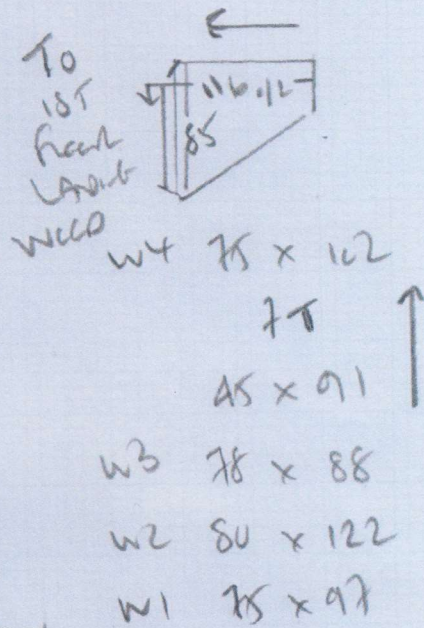 To
1ST
Floor
Landing
Wood
116 1/2
85
W4 75 x 102
7T
45 x 91
W3 78 x 88
W2 80 x 122
W1 75 x 97